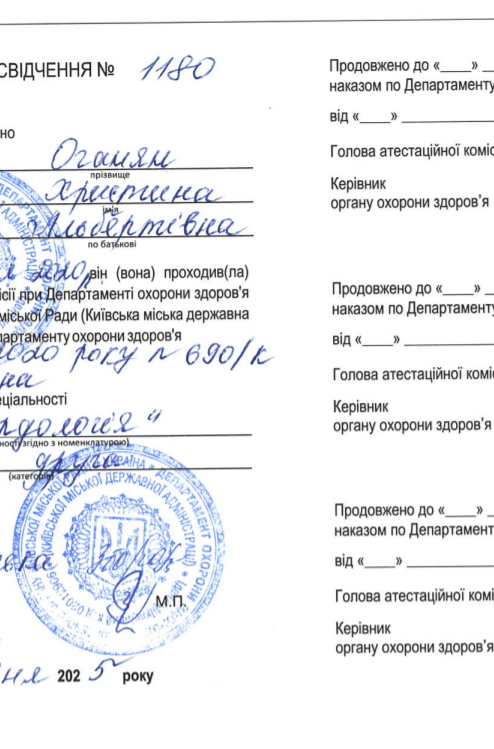 СВІДЧЕННЯ № 1180
но
Оганян
прізвище
Христина
імя
Альбертівна
по батькові
він (вона) проходив(ла)
ісії при Департаменті охорони здоров'я
міської Ради (Київська міська державна
партаменту охорони здоров'я
2020 року n 690/к
на
еціальності
рдологія"
ності згідно з номенклатурою)
друга
(категорія)
М.П.
ня 2025 року
Продовжено до «____» _
наказом по Департаменту
від «____» ____
Голова атестаційної коміс
Керівник
органу охорони здоров'я
Продовжено до «____» _
наказом по Департаменту
від «____» ____
Голова атестаційної коміс
Керівник
органу охорони здоров'я
Продовжено до «____» _
наказом по Департамент
від «____» ____
Голова атестаційної комі
Керівник
органу охорони здоров'я